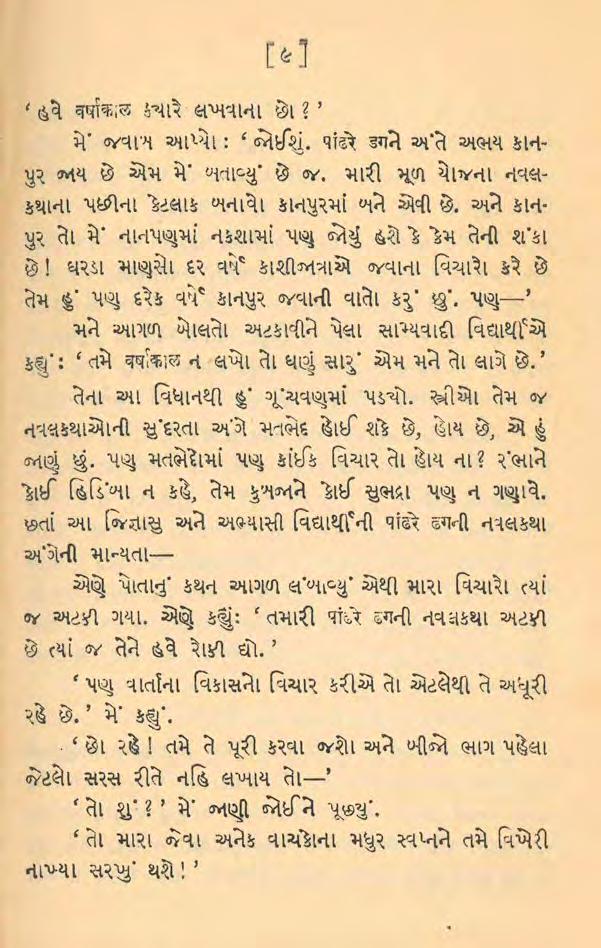 [૯]
‘હવે वर्षाकाल ક્યારે લખવાના છો?’
મેં જવાબ આપ્યો: ‘જોઈશું. पांढरे ढगને અંતે અભય કાન-
પુર જાય છે એમ મેં બતાવ્યું છે જ. મારી મૂળ યોજના નવલ-
કથાના પછીના કેટલાક બનાવો કાનપુરમાં બને એવી છે. અને કાન-
પુર તો મેં નાનપણમાં નકશામાં પણ જોયું હશે કે કેમ તેની શંકા
છે! ઘરડા માણસો દર વર્ષે કાશીજાત્રાએ જવાના વિચારો કરે છે
તેમ હું પણ દરેક વર્ષે કાનપુર જવાની વાતો કરું છું. પણ—’
મને આગળ બોલતો અટકાવીને પેલા સામ્યવાદી વિદ્યાર્થીએ
કહ્યું: ‘તમે वर्षाकाल ન લખો તો ઘણું સારું એમ મને તો લાગે છે.’
તેના આ વિધાનથી હું ગૂંચવણમાં પડયો. સ્ત્રીઓ તેમ જ
નવલકથાઓની સુંદરતા અંગે મતભેદ હોઈ શકે છે, હોય છે, એ હું
જાણું છું. પણ મતભેદોમાં પણ કાંઈક વિચાર તો હોય ના? રંભાને
કોઈ હિડિંબા ન કહે, તેમ કુબ્જાને કોઈ સુભદ્રા પણ ન ગણાવે.
છતાં આ જિજ્ઞાસુ અને અભ્યાસી વિદ્યાર્થીની पांढरे ढगની નવલકથા
અંગેની માન્યતા—
એણે પોતાનું કથન આગળ લંબાવ્યું એથી મારા વિચારો ત્યાં
જ અટકી ગયા. એણે કહ્યું: ‘તમારી पांढरे ढगની નવલકથા અટકી
છે ત્યાં જ તેને હવે રોકી દ્યો.’
‘પણ વાર્તાના વિકાસનો વિચાર કરીએ તો એટલેથી તે અધૂરી
રહે છે.’ મેં કહ્યું.
‘છો રહે! તમે તે પૂરી કરવા જશો અને બીજો ભાગ પહેલા
જેટલો સરસ રીતે નહિ લખાય તો—’
‘તો શું?’ મેં જાણી જોઈને પૂછ્યું.
‘તો મારા જેવા અનેક વાચકોના મધુર સ્વપ્નને તમે વિખેરી
નાખ્યા સરખું થશે!’